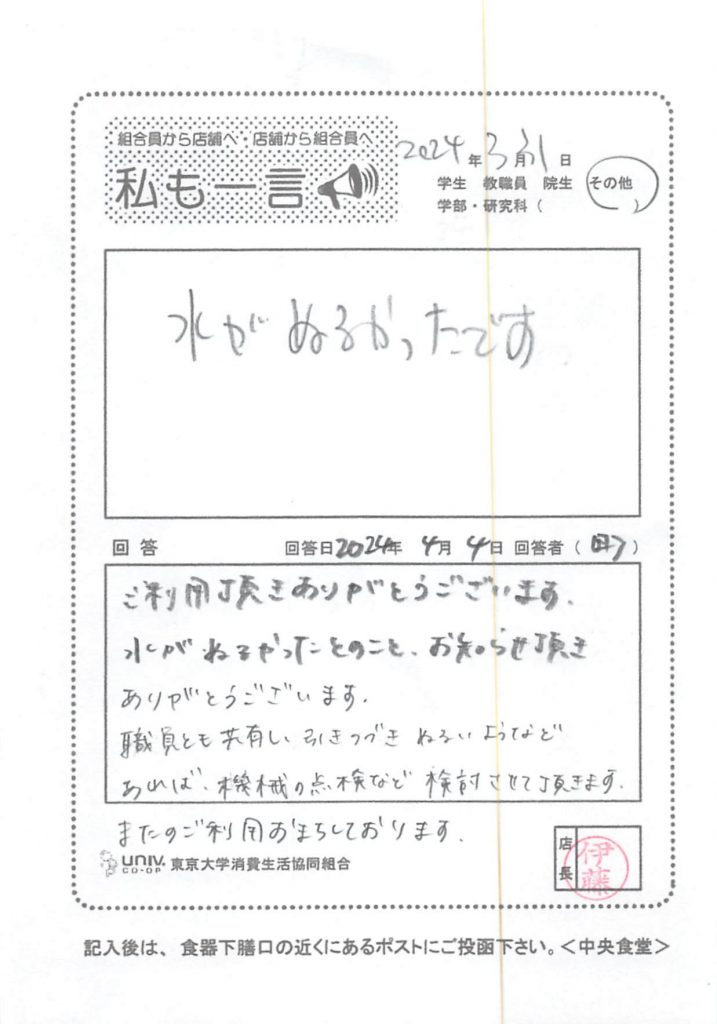 組合員から店舗へ・店舗から組合員へ
私も一言
2024年3月31日
学生 教職員 院生 その他
学部・研究科（ ）
水がぬるかったです
回答 回答日2024年 4月 4日 回答者（ ）
ご利用頂きありがとうございます。
水がぬるかったとのこと、お知らせ頂き
ありがとうございます。
職員とも共有し、引きつづき ぬるいようなど
あれば、機械の点検など 検討させて頂きます。
またのご利用おまちしております。
UNIV. CO-OP 東京大学消費生活協同組合
店長 伊藤
記入後は、食器下膳口の近くにあるポストにご投函下さい。＜中央食堂＞